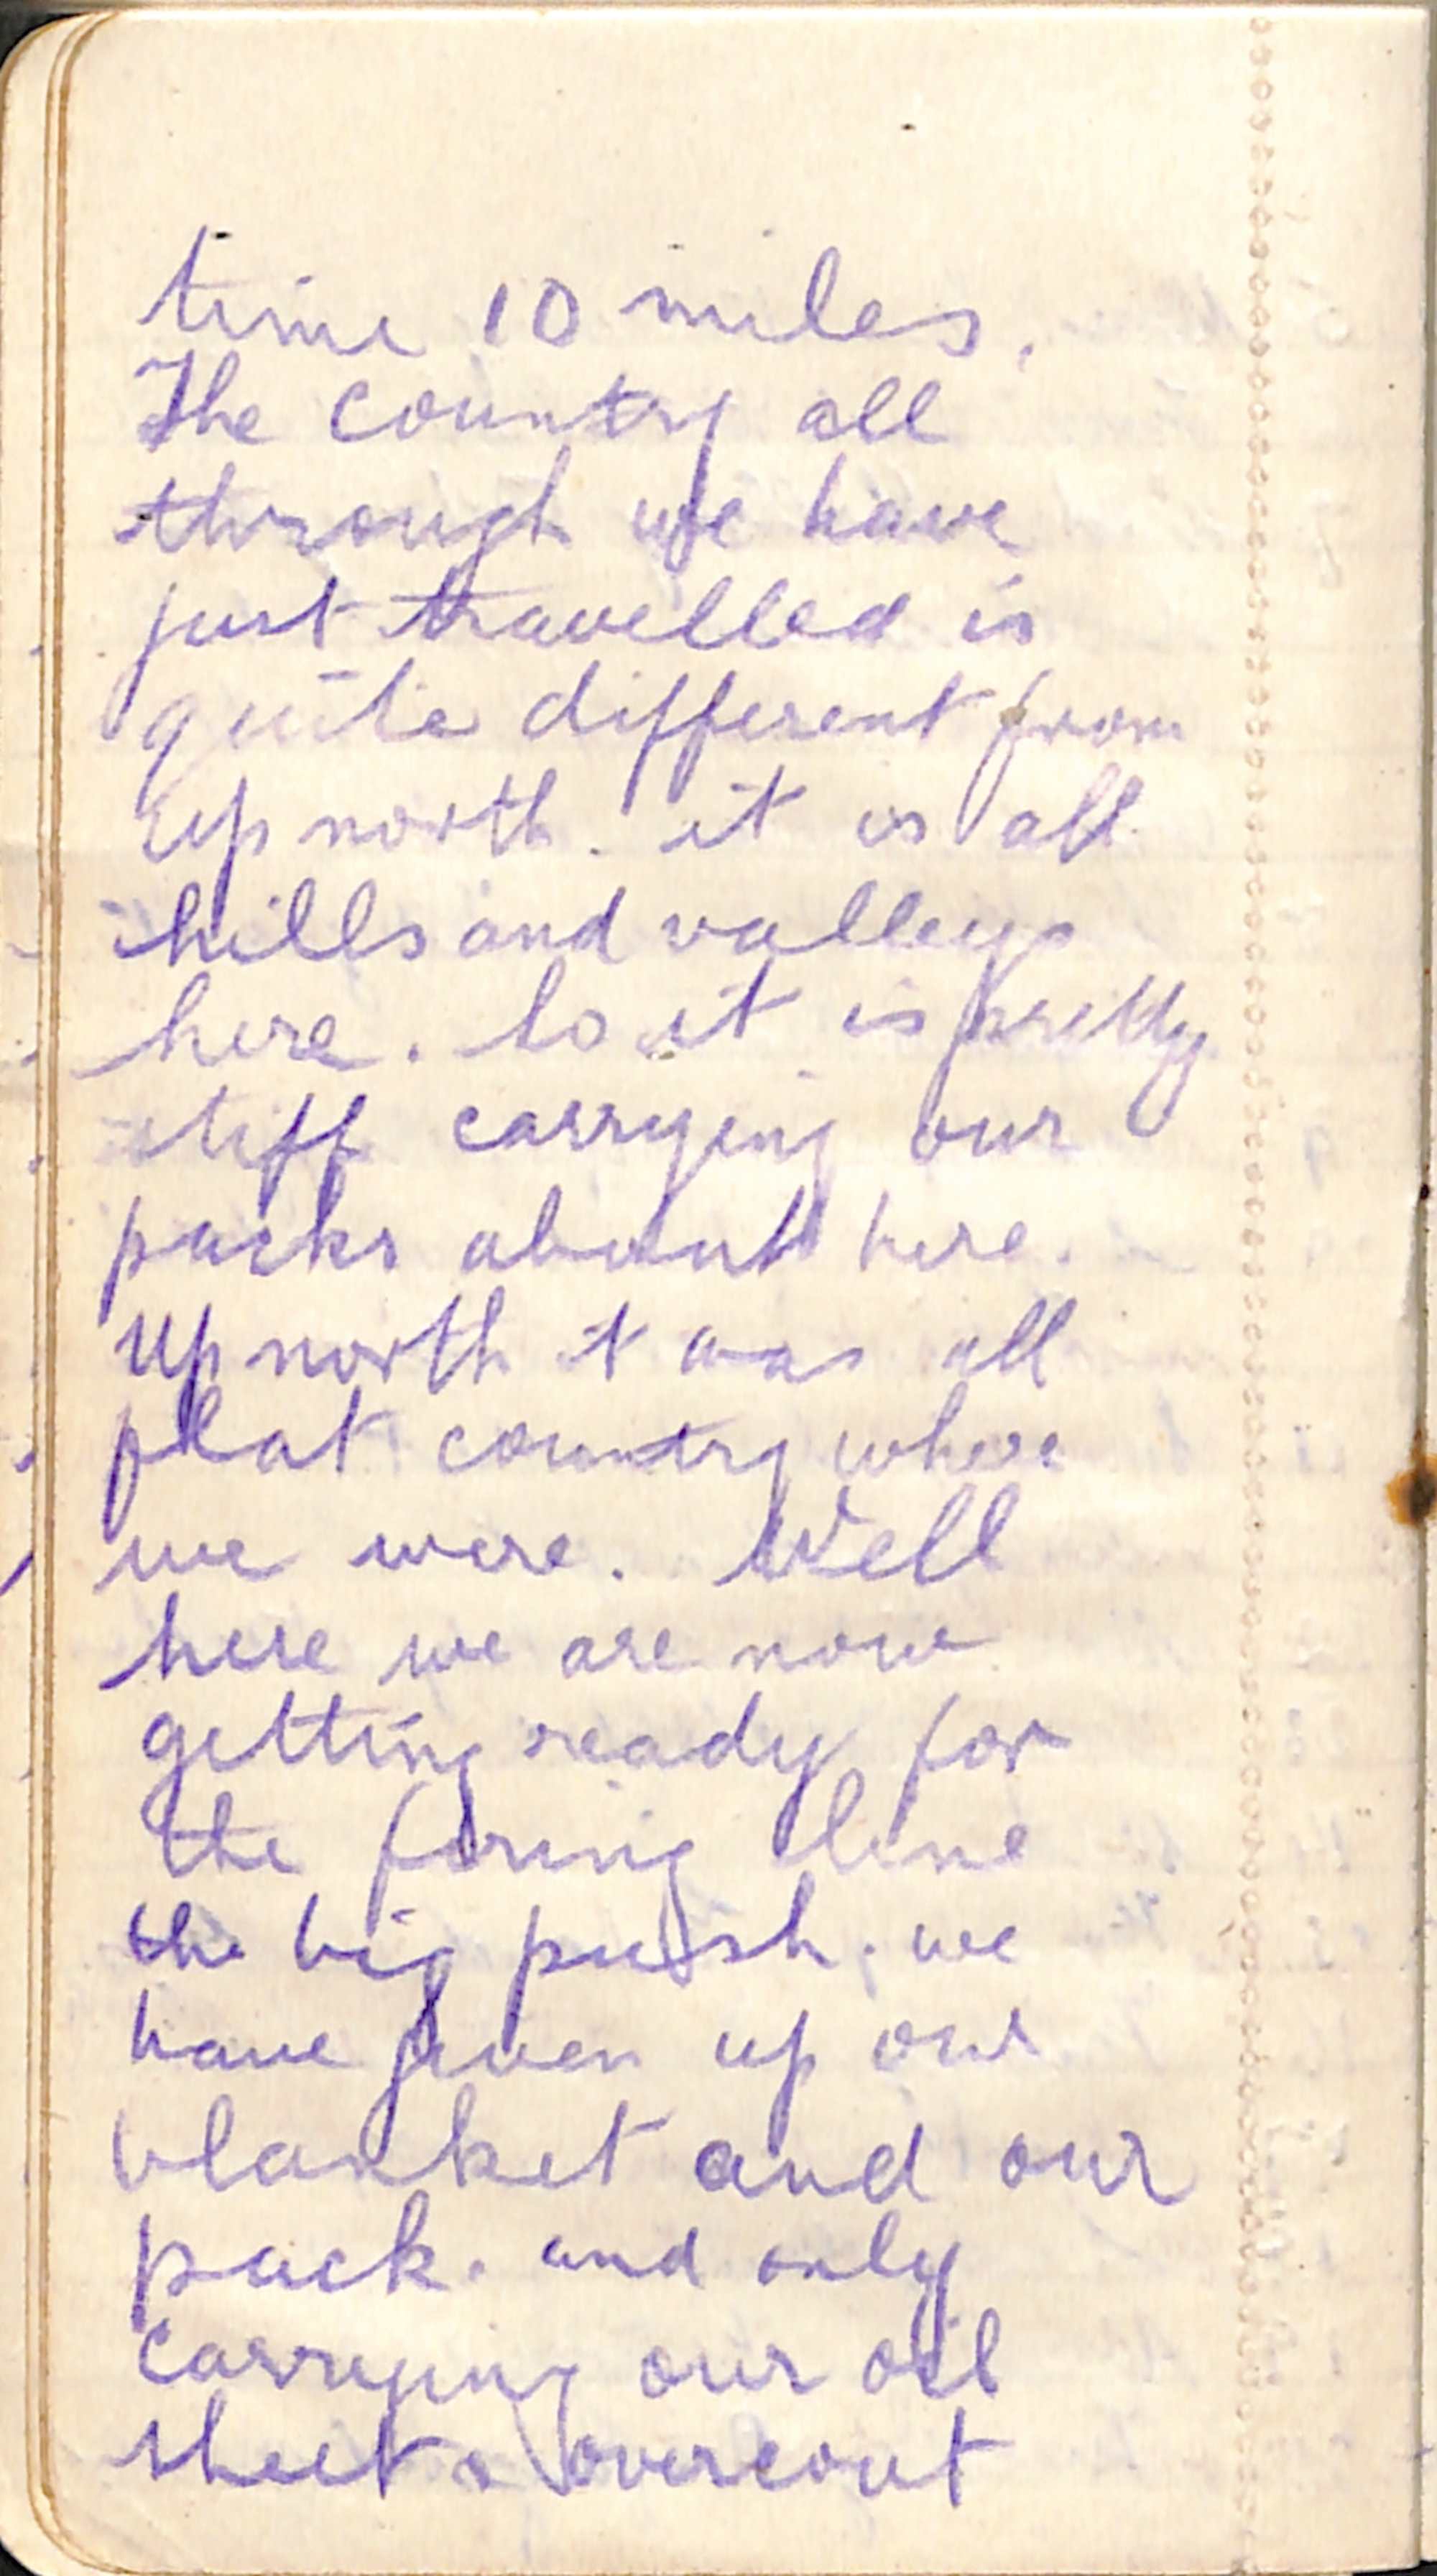 time 10 miles.
The country all
through we have
just travelled is
quite different from
up north. it is all
hills and valleys
here. So it is pretty
stiff carrying our
packs about here.
Up north it was all
flat country where
we were. Well
here we are now
getting ready for
the firing line
the big push. we
have given up our
blanket and our
pack. and only
carrying our oil
sheet & overcoat